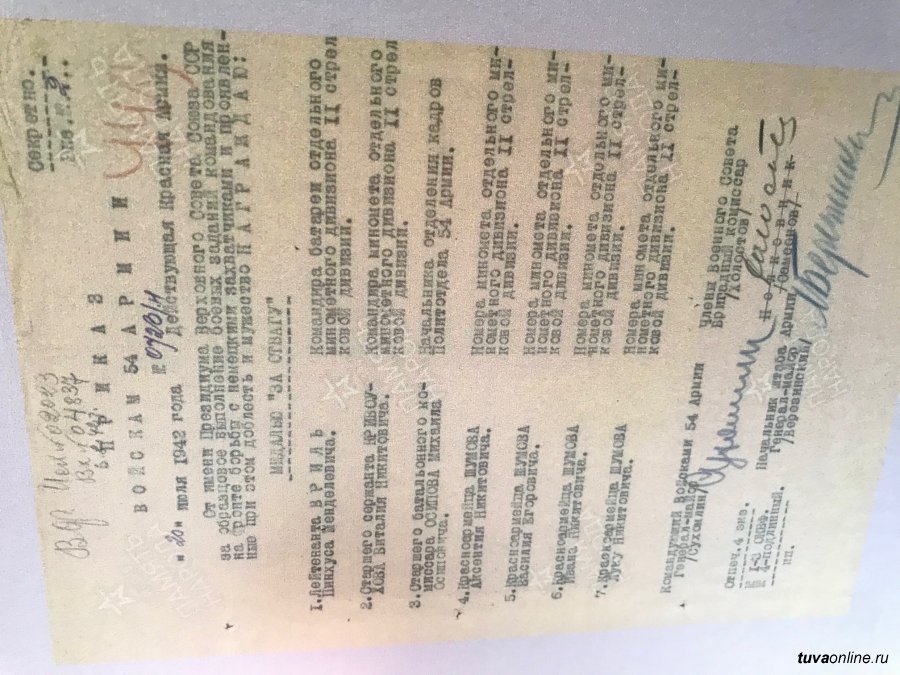 Секретно.
Экз.№ 2..
Вх. 04837
П Р И К А З
В О Й С К А М 54 А Р М И И
"20" июля 1942 года № 0720/н Действующая Красная Армия.
От имени Президиума Верховного Совета Союза ССР
за образцовое выполнение боевых заданий командования
на фронте борьбы с немецкими захватчиками и проявлен-
ные при этом доблесть и мужество НАГРАЖДАЮ:
МЕДАЛЬЮ "ЗА ОТВАГУ"
1.Лейтенанта В Р И Л Ь
Пинхуса Менделевича.
Командира батареи отдельного
минометного дивизиона II стрел
ковой дивизии.
2.Старшего сержанта КРИВОУ-
ХОВА Виталия Никитовича.
Командира миномета отдельного
минометного дивизиона II стрел
ковой дивизии.
3.Старшего батальонного ко-
миссара ОСИПОВА Михаила
Осиповича.
Начальника отделения кадров
Политотдела 54 Армии.
4.Красноармейца ШУМОВА
Авксентия Никитовича.
Номера миномета отдельного ми-
нометного дивизиона II стрел-
ковой дивизии.
5.Красноармейца ШУМОВА
Василия Егоровича.
Номера миномета отдельного ми-
нометного дивизиона II стрел-
ковой дивизии.
6.Красноармейца ШУМОВА
Ивана Никитовича.
Номера миномета отдельного ми-
нометного дивизиона II стрел-
ковой дивизии.
7.Красноармейца ШУМОВА
Луку Никитовича.
Номера миномета отдельного ми-
нометного дивизиона II стрел-
ковой дивизии.
Командующий Войсками 54 Армии
Генерал-майор
/Сухомлин/
Члены Военного Совета
Бригадный комиссар
/Холостов/
Начальник штаба Армии
Генерал-майор
/Березинский/
Отпеч.4 экз.
-Подлинный.
ПАМЯТЬ НАРОДА
tuvaonline.ru